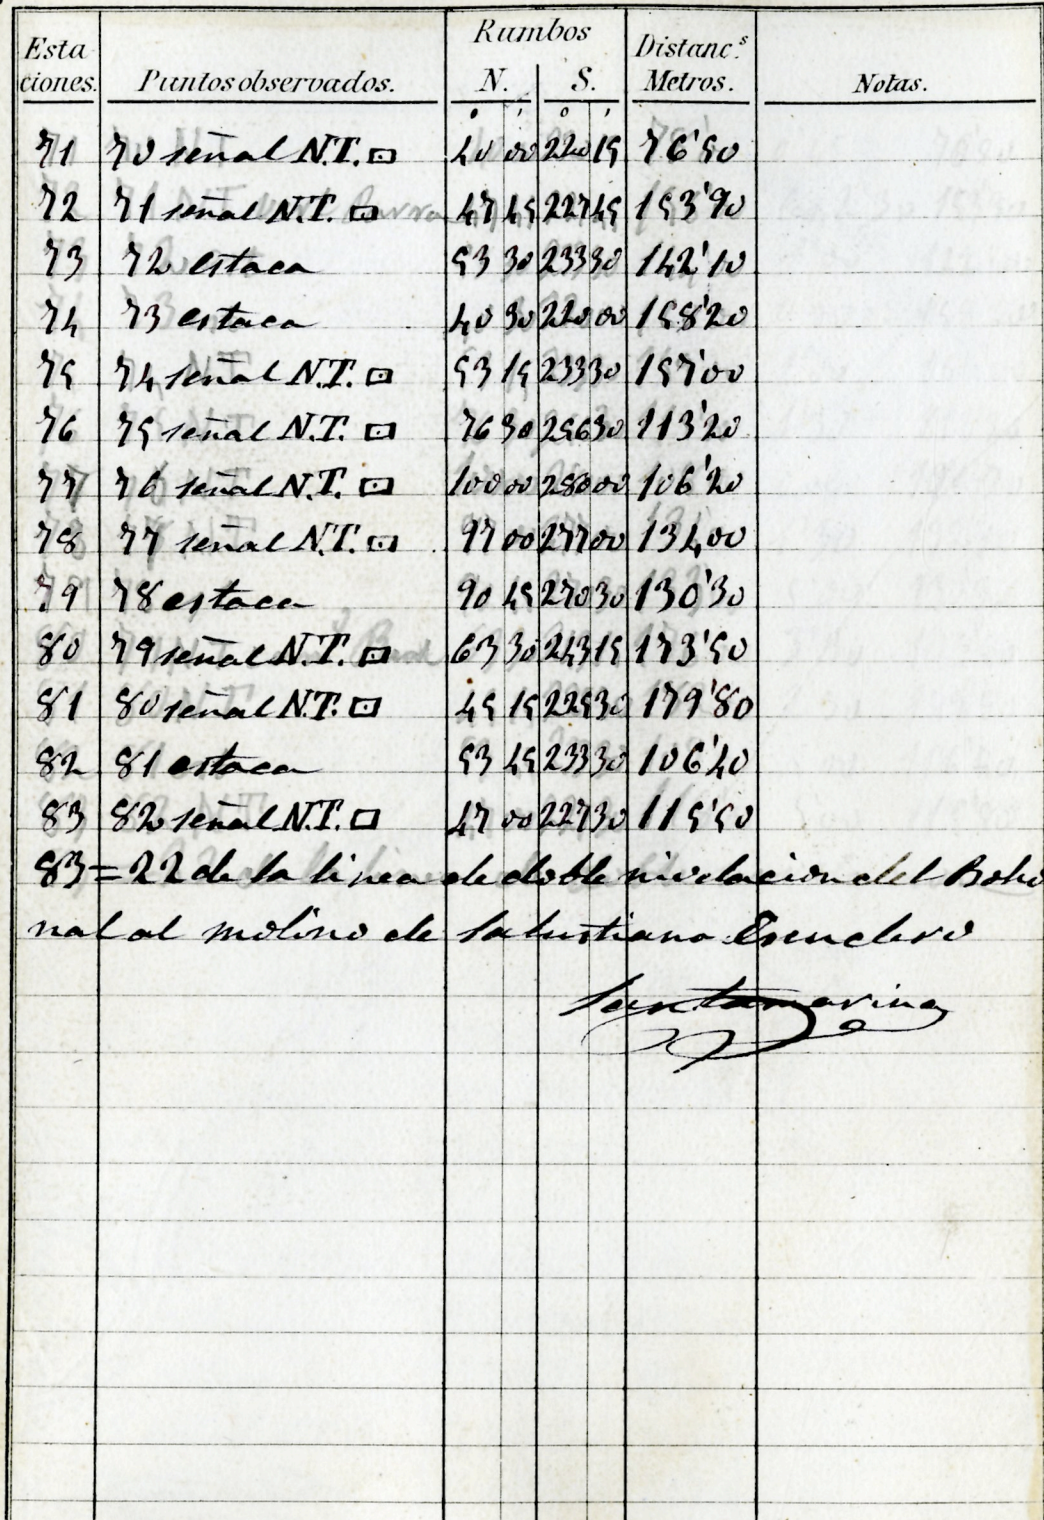 Estaciones. Puntos observados. Rumbos N. S. Distanc.s Metros. Notas.
° ' ° '
71 70 señal N.T. ⊡ 40 00 220 15 76'50
72 71 señal N.T. ⊡ 47 45 227 45 153'90
73 72 estaca 53 30 233 30 142'10
74 73 estaca 40 30 220 00 158'20
75 74 señal N.T. ⊡ 53 15 233 30 157'00
76 75 señal N.T. ⊡ 76 30 256 30 113'20
77 76 señal N.T. ⊡ 100 00 280 00 106'20
78 77 señal N.T. ⊡ 97 00 277 00 134,00
79 78 estaca 90 45 270 30 130'30
80 79 señal N.T. ⊡ 63 30 243 15 173'50
81 80 señal N.T. ⊡ 45 15 225 30 179'80
82 81 estaca 53 45 233 30 106'40
83 82 señal N.T. □ 47 00 227 30 115'50
83 = 22 de la linea de doble nivelacion del Boho
nal al molino de Salustiano Escudero
Santamarina